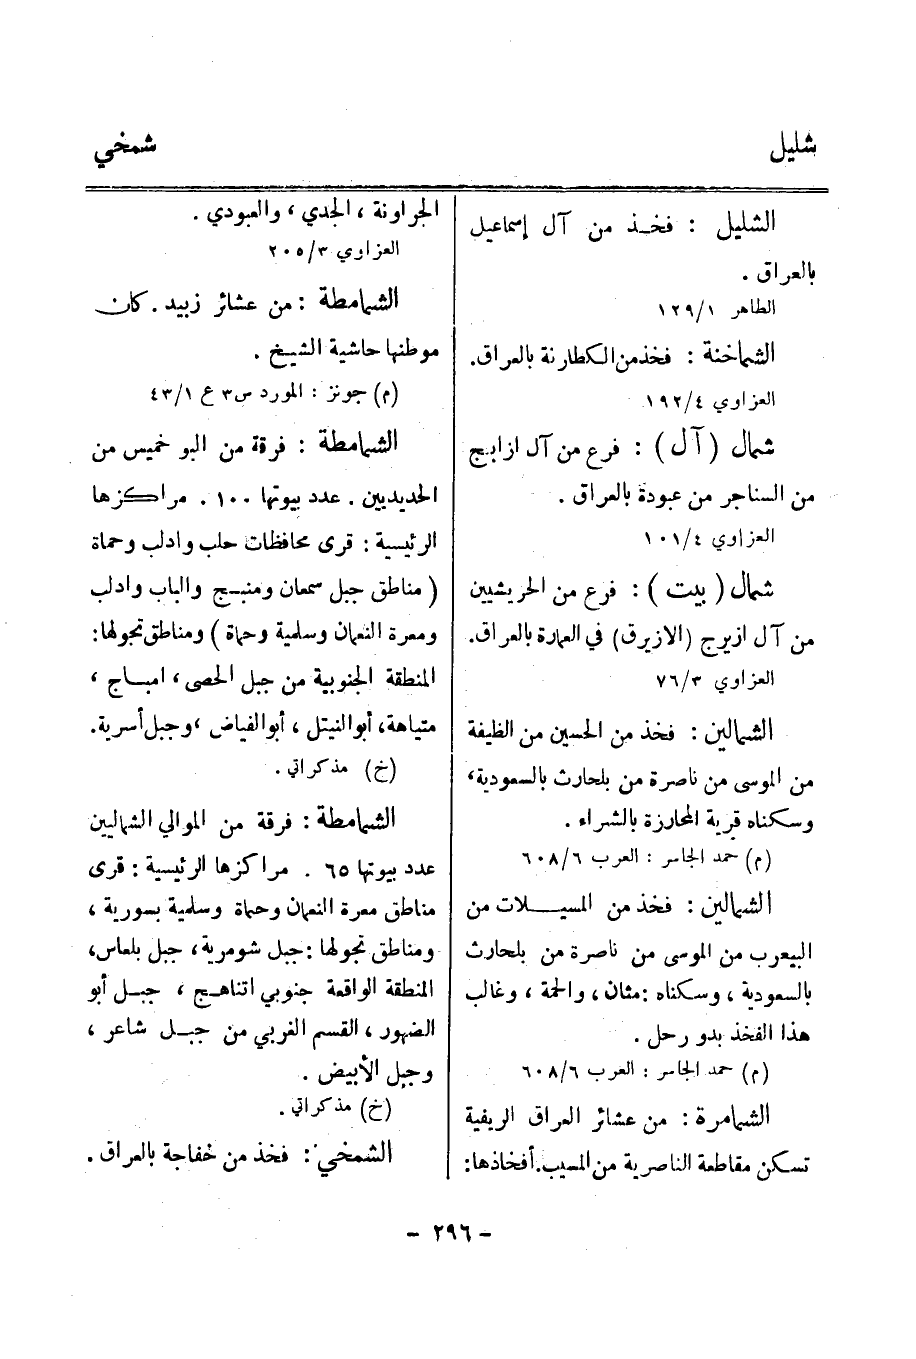 شليل
شمخي
الشليل : فخذ من آل إسماعيل
بالعراق .
الطاهر ١/١٢٩
الشماخنة : فخذ من الكطارنة بالعراق.
العزاوي ٤/١٩٢
شمال (آل) : فرع من آل ازابج
من السناجر من عبودة بالعراق .
العزاوي ٤/١٠١
شمال (بيت) : فرع من الحريشيين
من آل ازيرج (الازيرق) في العمارة بالعراق.
العزاوي ٣/٧٦
الشمالين : فخذ من الحسين من الظيفة
من الموسى من ناصرة من بلحارث بالسعودية،
وسكناه قرية المحارزة بالشراء .
(م) حمد الجاسر : العرب ٦/٦٠٨
الشمالين : فخذ من المسيلات من
اليعرب من الموسى من ناصرة من بلحارث
بالسعودية ، وسكناه : مثان ، والحمة ، وغالب
هذا الفخذ بدو رحل .
(م) حمد الجاسر : العرب ٦/٦٠٨
الشمامرة : من عشائر العراق الريفية
تسكن مقاطعة الناصرية من المسيب. أفخاذها:
الجراونة ، الجدي ، والعبودي .
العزاوي ٣/٢٠٥
الشمامطة : من عشائر زبيد . كان
موطنها حاشية الشيخ .
(م) جونز : المورد س٣ ع ٤٣/١
الشمامطة : فرقة من البو خميس من
الحديديين . عدد بيوتها ١٠٠ . مراكزها
الرئيسية : قرى محافظات حلب وادلب وحماة
( مناطق جبل سمعان ومنبج والباب وادلب
ومعرة النعمان وسلمية وحماة ) ومناطق تجولها:
المنطقة الجنوبية من جبل الحصى ، امباج ،
متياهة، أبو النيتل ، أبو الفياض ، وجبل أسرية.
(خ) مذكراتي .
الشمامطة : فرقة من الموالي الشماليين
عدد بيوتها ٦٥ . مراكزها الرئيسية : قرى
مناطق معرة النعمان وحماة وسلمية بسورية ،
ومناطق تجولها : جبل شومرية، جبل بلعاس،
المنطقة الواقعة جنوبي اتناهج ، جبل أبو
الضهور ، القسم الغربي من جبل شاعر ،
وجبل الأبيض .
(خ) مذكراتي .
الشمخي : فخذ من خفاجة بالعراق .
- ٢٩٦ -